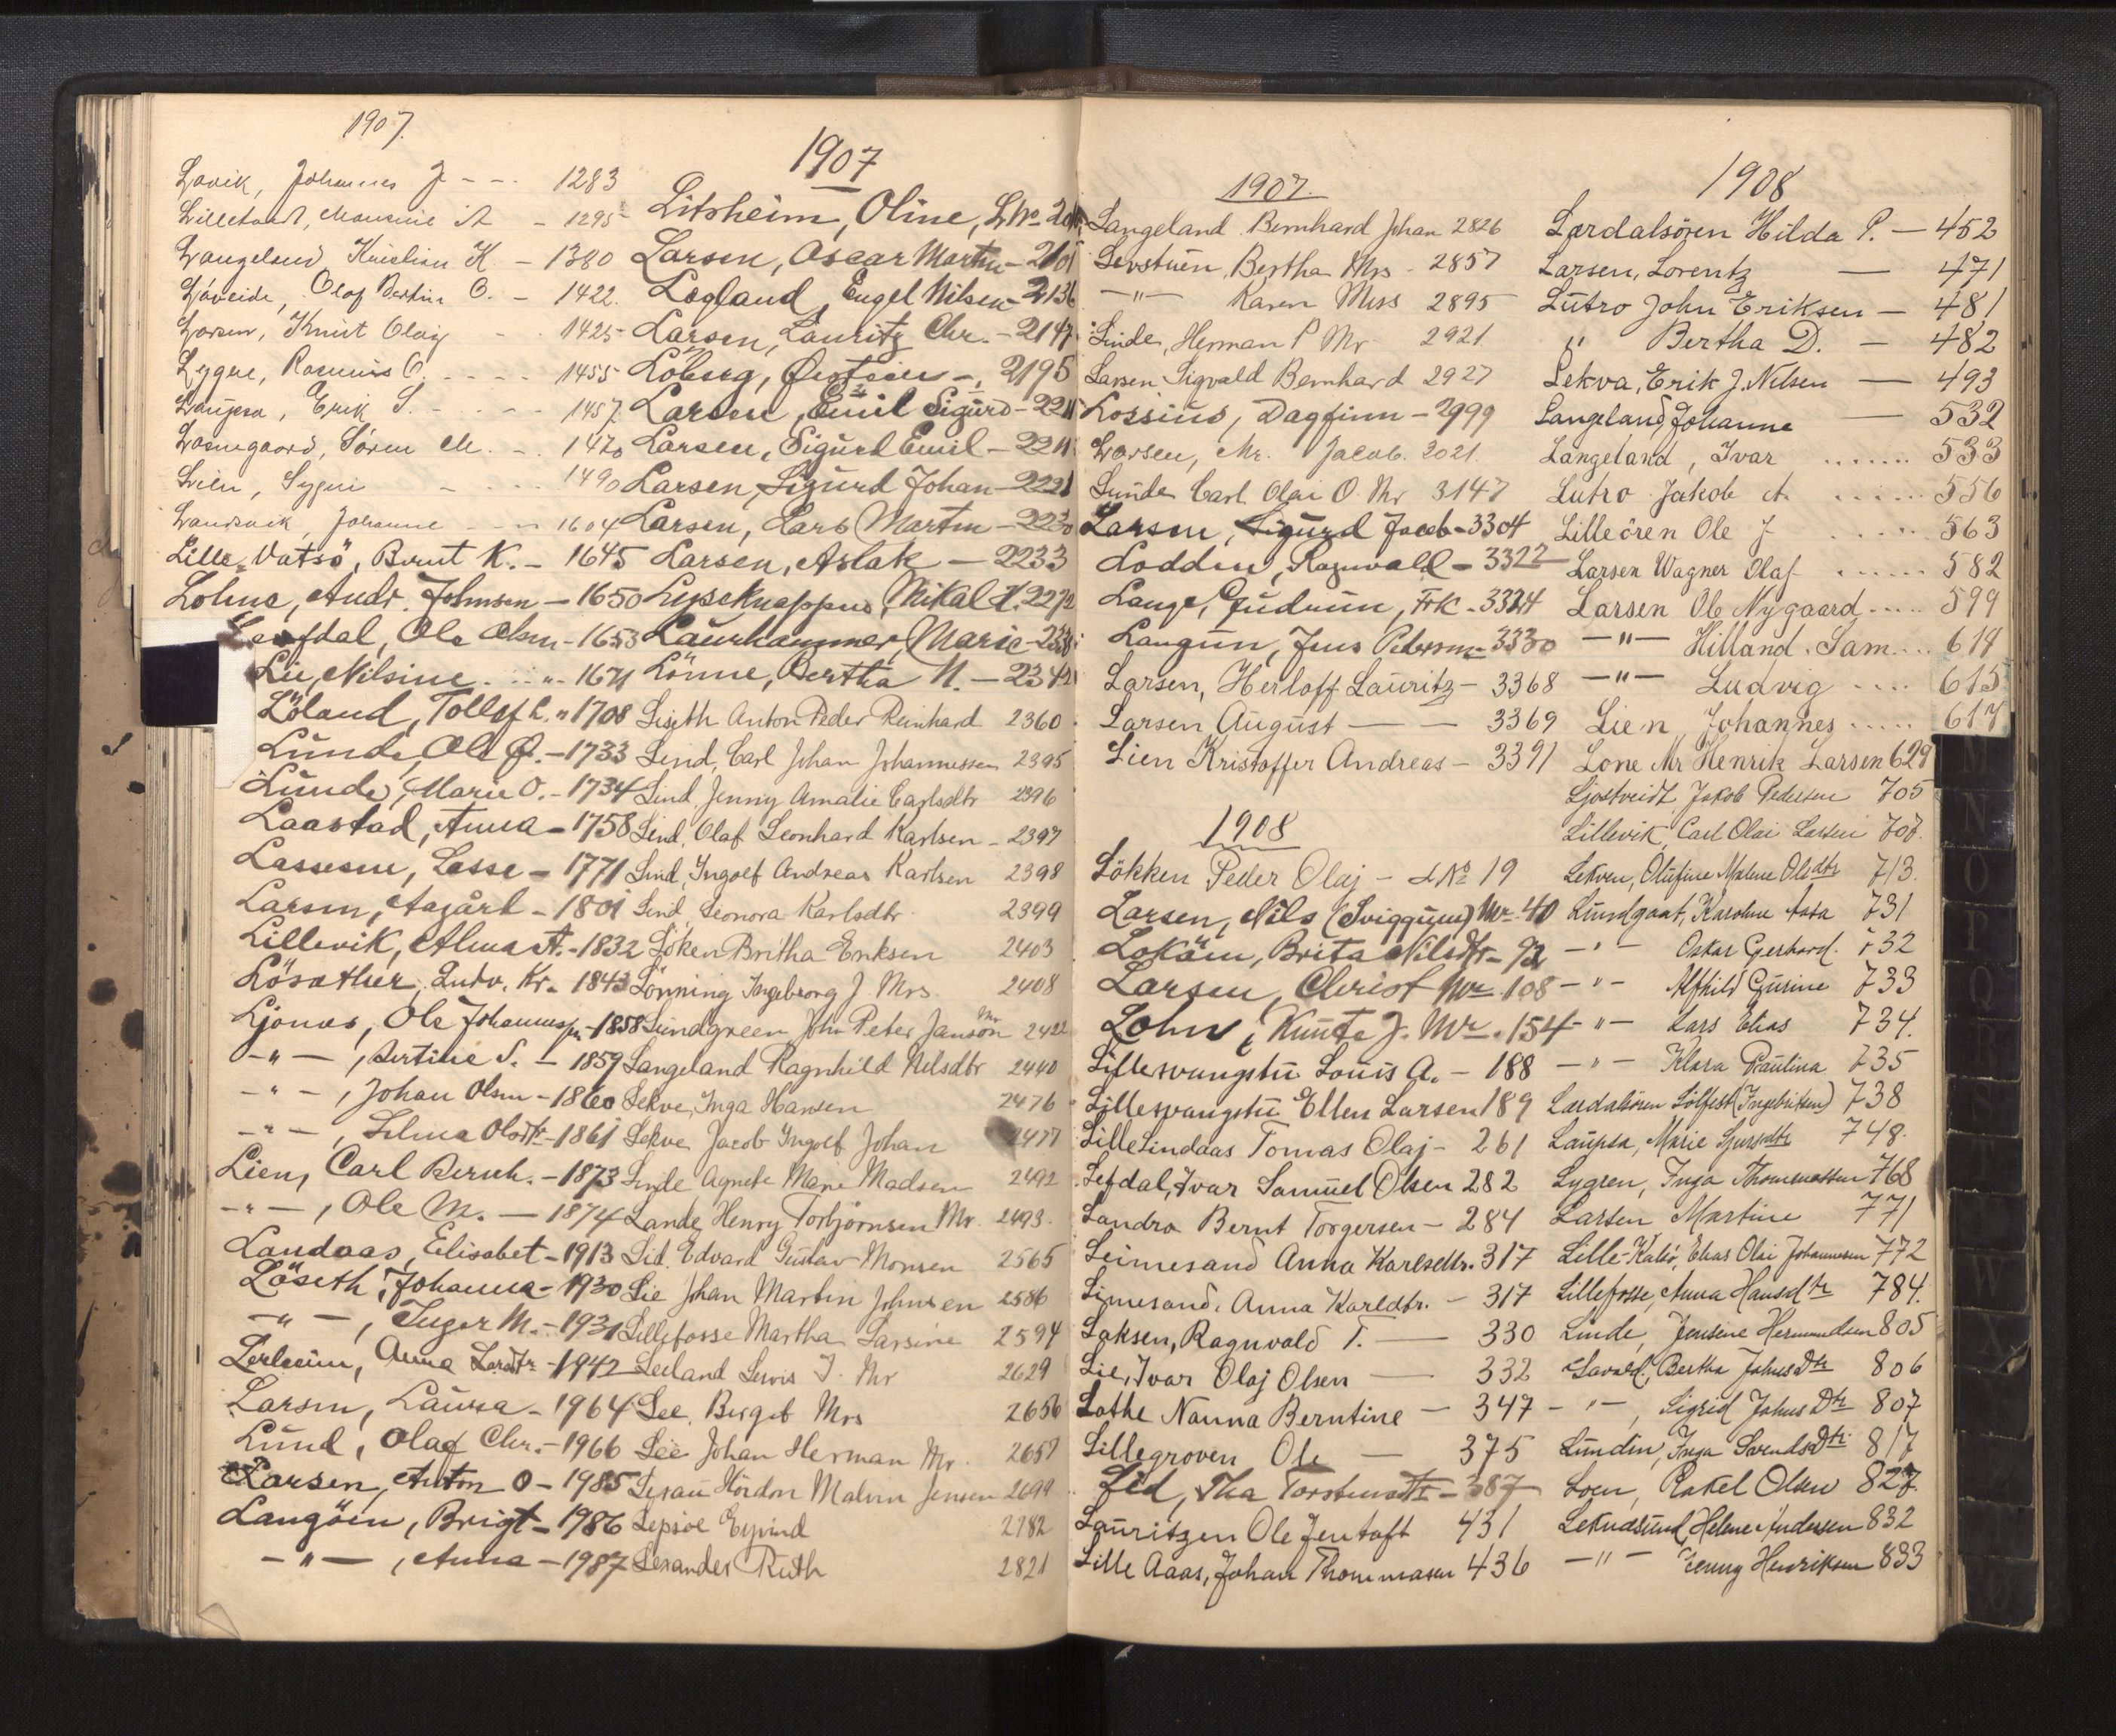 1907.
Lavik, Johannes J - - - 1283
Lilletvedt, A - 1295
Langeland, Kristian K. - 1380
Løveide, Olaf Bertin O. - 1422.
Larsen, Knut Olaiy - - 1425
Lygre, Rasmus O. - - - - 1455
Laupsa, Erik S. - - - - 1457.
Losnegaard, Søren M. - - 1470
Lien, Sygni - - - - 1490
Landsvik, Johanne - - - 1604
Lille-Vatsö, Bernt K. - 1645
Lohne, Andr. Johnsen - 1650
Lexfdal, Ole Olsen - 1653
Lie, Nilsine. .. „ .. 1671
Löland, Tollef L. „ 1708
Lunde, Ole Ø. - 1733
Lunde, Marie O. - 1734
Laastad, Anna - 1758
Lassesen, Lasse - 1771
Larsen, Aagårt - 1801
Lillevik, Alma A. - 1832
Lösæther, Ludv. Kr. - 1843
Ljønes, Ole Johannesen - 1858
- „ - , Bertine S. - 1859
- „ - , Johan Olsen - 1860
- „ - , Selma Olsdtr - 1861
Lien, Carl Bernh. - 1873
- „ - , Ole M. - 1874
Landaas, Elisabet - 1913
Löseth, Johanna - 1930
- „ - , Inger M. - 1931
Lerheim, Anna Larsdtr - 1942
Larsen, Laura - 1964
Lund, Olaf Chr. - 1966
Larsen, Anton O - 1985
Langöen, Brigt - 1986
- „ - , Anna - 1987
1907
Litsheim, Oline, LNo
Larsen, Oscar Martin - 2101
Legland, Engel Nilsen - 2136
Larsen, Lauritz Chr. - 2147
Löberg, Øistein - 2195
Larsen, Emil Sigurd - 221
Larsen, Sigurd Emil - 221
Larsen, Sigurd Johan - 2221
Larsen, Lars Martin - 2230
Larsen, Aslak - 2233
Lyseknappen, Mikal H. 2272
Laurhammer, Marie
Lönne, Bertha N. - 2342
Liseth Anton Peder Reinhard 2360
Lind, Carl Johan Johannessen 2395
Lind, Jenny Amalie Carlsdtr 2396
Lind, Olaf Leonhard Karlsen - 2397
Lind, Ingolf Andreas Karlsen 2398
Lind, Leonora Karlsdtr. 2399
Löken Britha Eriksen 2403
Lönning Ingeborg J. Mrs. 2408
Lundgreen John Peter Janson Mr 2422
Langeland Ragnhild Nelsdtr 2440
Lekve, Inga Hansen 2476
Lekve Jacob Ingolf Johan 2477
Linde Agnete Marie Madsen 2492
Lande, Henry Torbjørnsen Mr. 2493.
Lid, Edvard Gustav Monsen 2565
Lie Johan Martin Johnsen 2586
Lillefosse Martha Larsine 2594
Leeland Lewis J. Mr 2629
Lee, Birgit Mrs 2656
Lee Johan Herman Mr. 2657
Lexau Hördon Malvin Jensen 2699
Lepsöe Eyvind 2782
Lexander Ruth 2821
1907.
Langeland Bernhard Johan 2826
Levstuen, Bertha Mrs - 2857
- „ - Karen Miss 2895
Linde, Herman P Mr. 2921.
Larsen Sigvald Bernhard 2927
Lossius, Dagfinn - 2999
Larsen, Mr. Jacob. 3021.
Lunde Carl Olai O. Mr 3147
Larsen, Sigurd Jacob - 3304
Lodden, Ragnvald - 3322
Lange, Gudrun, Frk. - 3324
Langun, Jens Pedersen - 3330
Larsen, Herloff Lauritz - 3368
Larsen August - - 3369
Lien Kristoffer Andreas - 3391
1908
Lökken Peder Olaj - LNo 19
Larsen, Nils (Sviggum) Mr. 40
Lokäm, Brita Nilsdtr - 92
Larsen, Christ Mr. 108
Lohn, Knute J. Mr. 154
Lillesvangstu Louis A. - 188
Lillesvangstu Ellen Larsen 189
Lille Lindaas Tomas Olaj - 261
Lefdal, Ivar Samuel Olsen 282
Landro Bernt Torgersen - 284
Leimesand Anna Karlsdtr. 317
Limesand, Anna Karldtr. - 317
Laksen, Ragnvald T. - 330
Lie, Ivar Olaj Olsen - 332
Lothe Nanna Berntine - 347
Lillegroven Ole - 375
Lid, Tha Torstensdtr - 387
Lauritzen Ole Jentoft 431
Lille Aaas, Johan Thommasen 436
1908
Lærdalsören Hilda P. - 452
Larsen, Lorentz - 471
Lutro John Eriksen - 481
„ Bertha D. - 482
Lekva, Erik J. Nilsen - 493
Langeland, Johanne - 532
Langeland, Ivar ....... 533
Lutro Jakob A. ...... 556
Lilleören Ole J ..... 563
Larsen Wagner Olaf ...... 582
Larsen Ole Nygaard ..... 599
- „ - Hilland. Sam... 614
- „ - Ludvig .... 615
Lien Johannes ..... 617
Lone Mr Henrik Larsen 629
Ljostveidt, Jakob Pedersen 705
Lillevik, Carl Olai Larsen 707.
Lekven, Olufine Malene Olsdtr 713.
Lundgaat, Karoline Aasa 731
- „ - Oskar Gerhard. 732
- „ - Alfhild Gurine 733
- „ - Lars Elias 734.
- „ - Klara Paulina 735
Lærdalsören Sölfest (Ingebriksen) 738
Laupsa, Marie Sjursdtr 748.
Lygren, Inga Thommassen 768
Larsen Martine 771
Lille-Kalsö, Elias Olai Johannesen 772
Lillefosse, Anna Hansdtr 784.
Linde, Jensine Hermundsen 805
Lavold, Bertha JohnsDtr 806
- „ - , Sigrid JohnsDtr 807
Lundin, Inga SvendsDtr 817
Loen, Rakel Olsen 827.
Leknæsund, Helene Andersen 832
- „ - Jenny Henriksen 833
N
O
P
Q
W
X